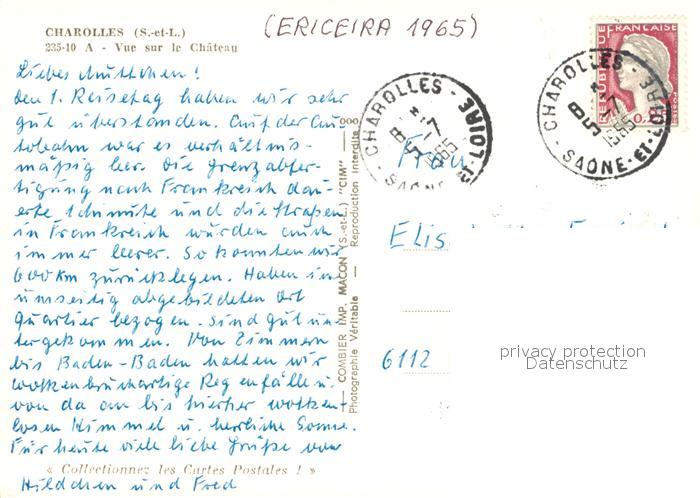 CHAROLLES (S.-et-L.)
235-10 A - Vue sur le Château
(ERICEIRA 1965)
Liebes Muttchen!
Den 1. Reisetag haben wir sehr
gut überstanden. Auf der Au-
tobahn war es verhältnis-
mäßig leer. Die Grenzabfer-
tigung nach Frankreich dau-
erte 1 Minute und die Straßen
in Frankreich wurden auch
immer leerer. So konnten wir
600 km zurücklegen. Haben im
umseitig abgebildeten Ort
Quartier bezogen. Sind gut un-
tergekommen. Von Zimmern
bis Baden-Baden hatten wir
wolkenbruchartige Regenfälle u.
von da an bis hierher wolken-
losen Himmel u. herrliche Sonne.
Für heute viele liebe Grüße von
« Collectionnez les Cartes Postales ! »
Hildchen und Fred
COMBIER IMP. MACON (S.-et-L.) "CIM"
Photographie Véritable — Reproduction Interdite
CHAROLLES
SAONE-ET-LOIRE
1965
CHAROLLES
SAONE-ET-LOIRE
1965
REPUBLIQUE FRANÇAISE
Frau
Elis
6112
privacy protection
Datenschutz